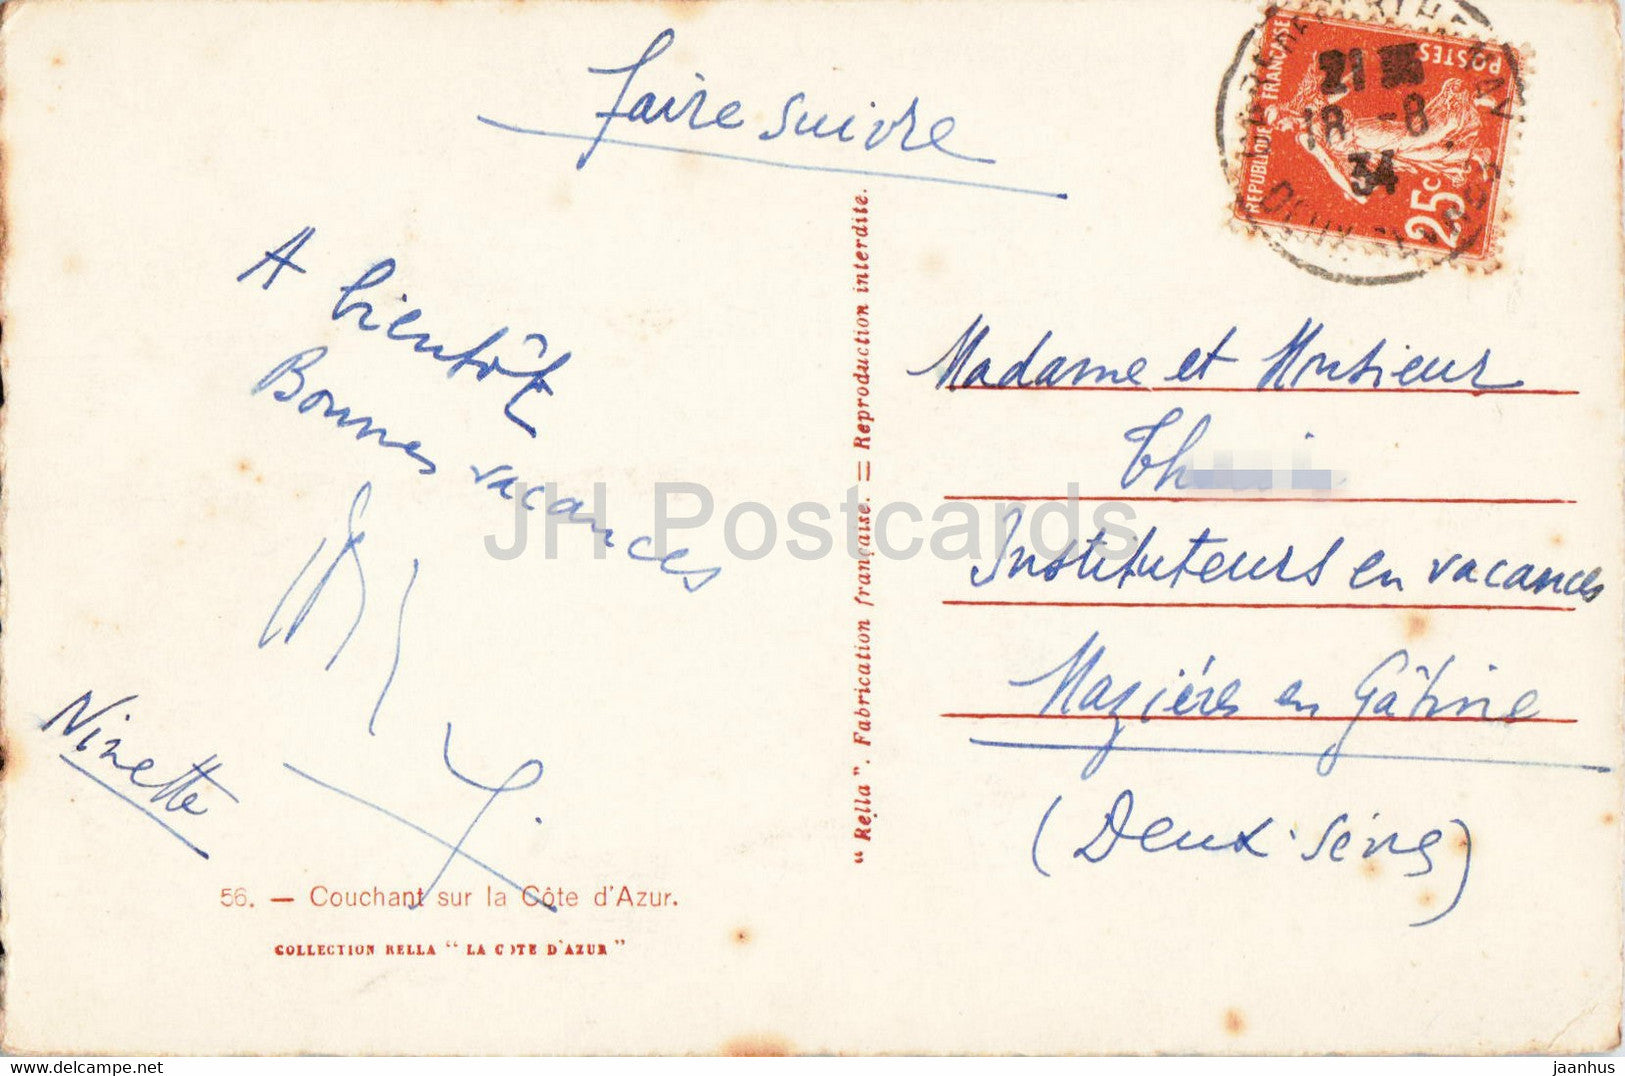 faire suivre
A bientôt
Bonnes vacances
Ninette
56. — Couchant sur la Côte d'Azur.
COLLECTION RELLA “ LA COTE D'AZUR ”
“ Rella ”. Fabrication française. = Reproduction interdite.
REPUBLIQUE FRANÇAISE
POSTES
25c
21
18 -8
34
Madame et Monsieur
Instituteurs en vacances
Maziéres en Gâtine
(Deux-Sèvres)
JH Postcards
delcampe.net
jaanhus